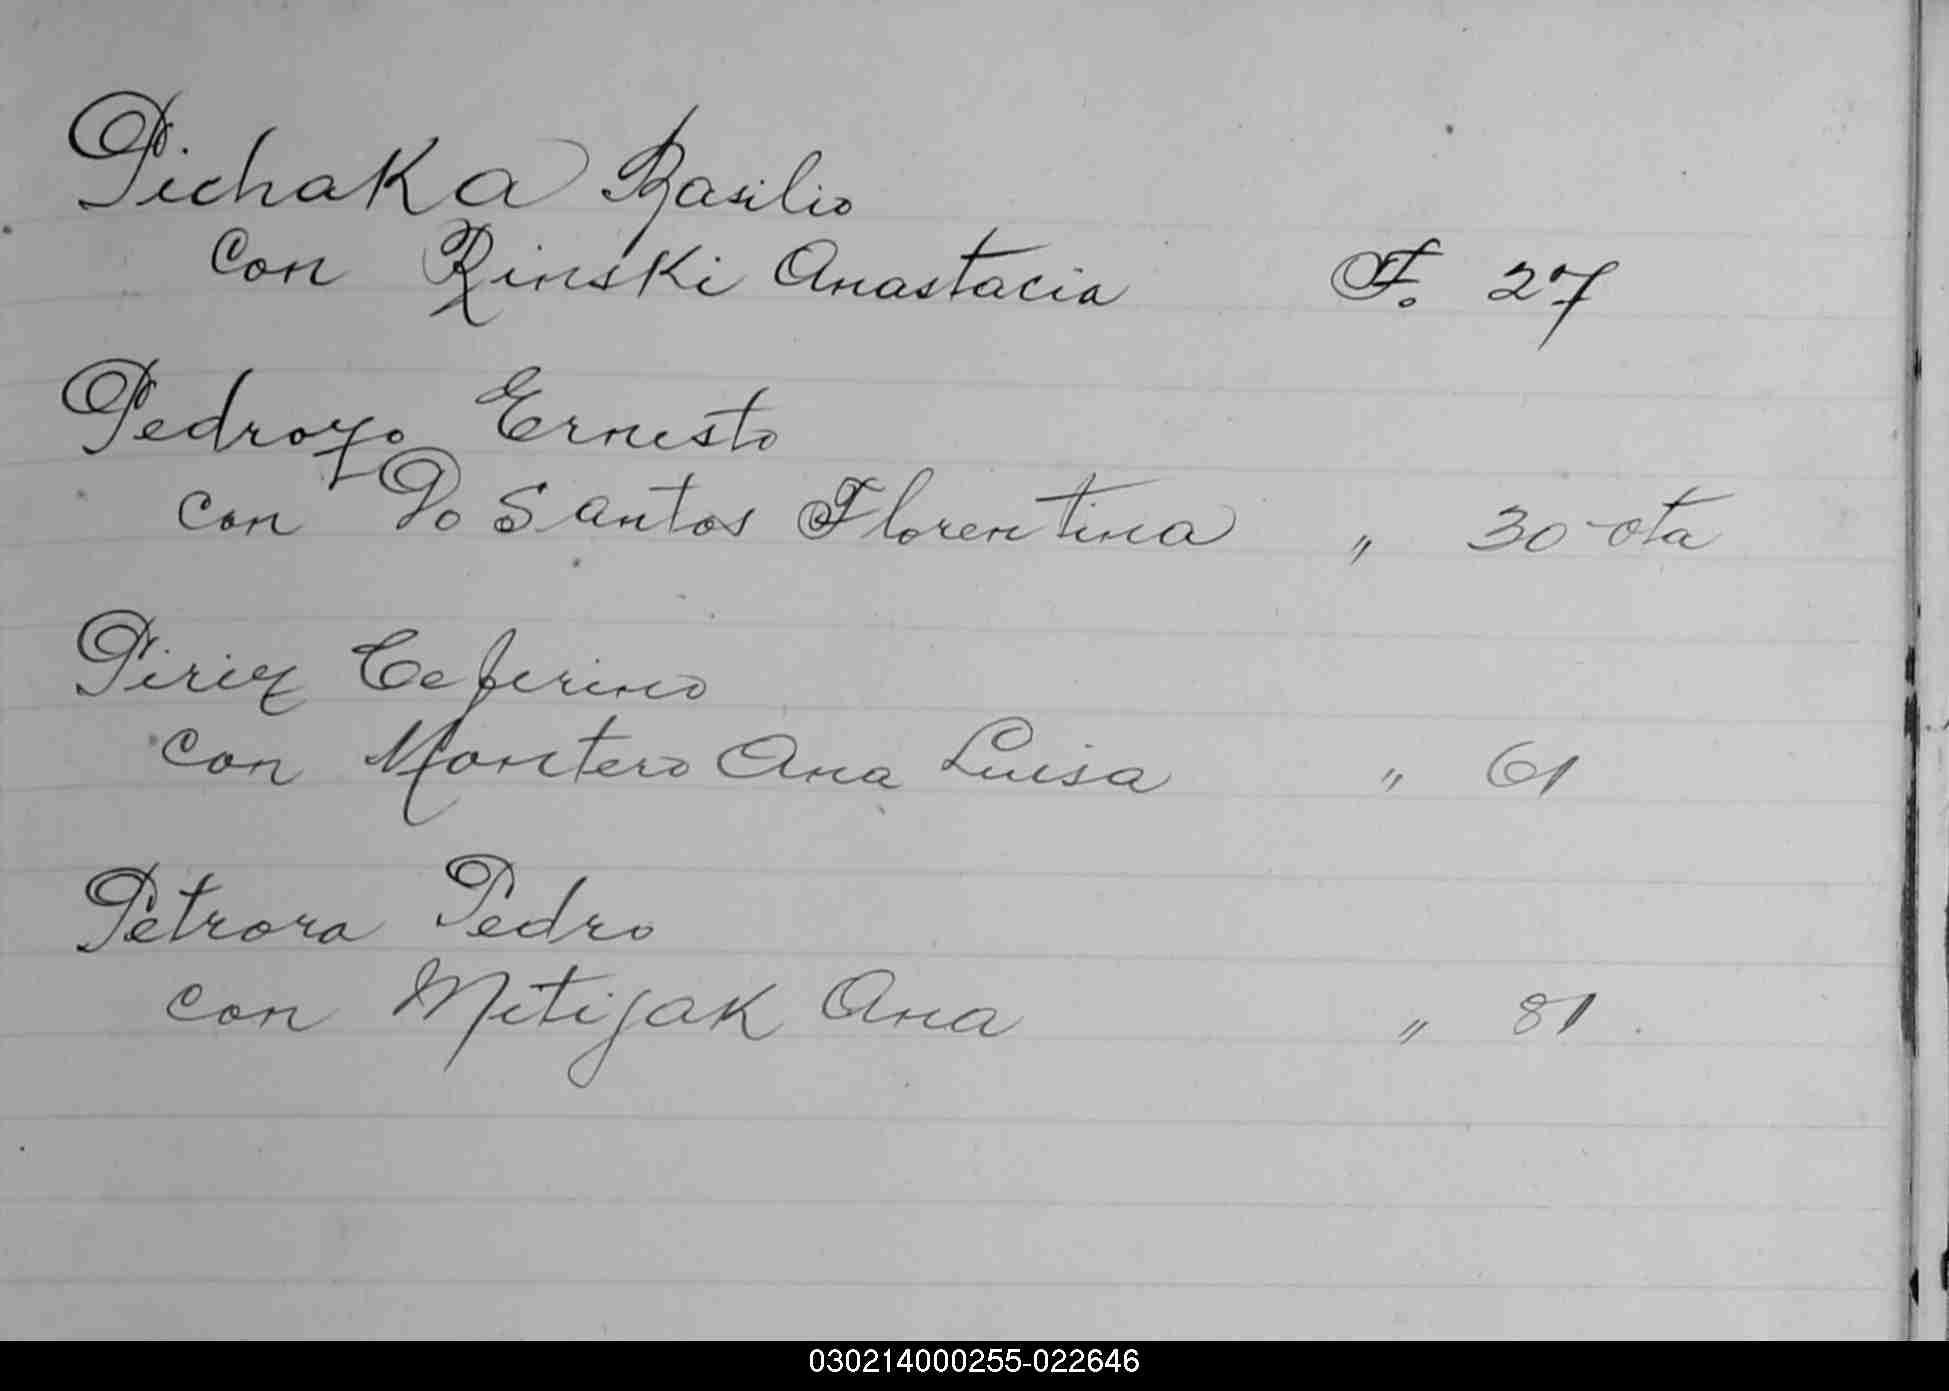 Pichaka Basilio
con Rinski Anastacia F. 27
Pedrozo Ernesto
con Do Santos Florentina " 30 ota
Piriz Ceferino
con Montero Ana Luisa " 61
Petrora Pedro
con Mitijak Ana " 81
030214000255-022646